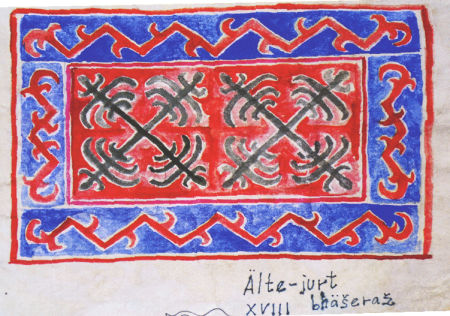 Älte-jurt
XVIII bhäšeraž